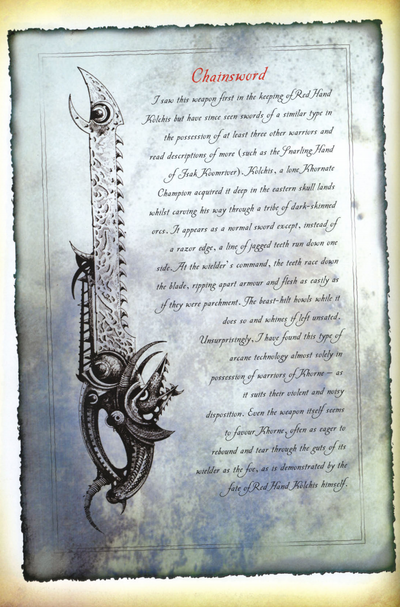 Chainsword
I saw this weapon first in the keeping of Red Hand
Kolchis but have since seen swords of a similar type in
the possession of at least three other warriors and
read descriptions of more (such as the Snarling Hand
of Isak Koomriver). Kolchis, a lone Khornate
Champion acquired it deep in the eastern skull lands
whilst carving his way through a tribe of dark-skinned
orcs. It appears as a normal sword except, instead of
a razor edge, a line of jagged teeth run down one
side. At the wielder's command, the teeth race down
the blade, ripping apart armour and flesh as easily as
if they were parchment. The beast-hilt howls while it
does so and whines if left unsated.
Unsurprisingly, I have found this type of
arcane technology almost solely in
possession of warriors of Khorne – as
it suits their violent and noisy
disposition. Even the weapon itself seems
to favour Khorne, often as eager to
rebound and tear through the guts of its
wielder as the foe, as is demonstrated by the
fate of Red Hand Kolchis himself.